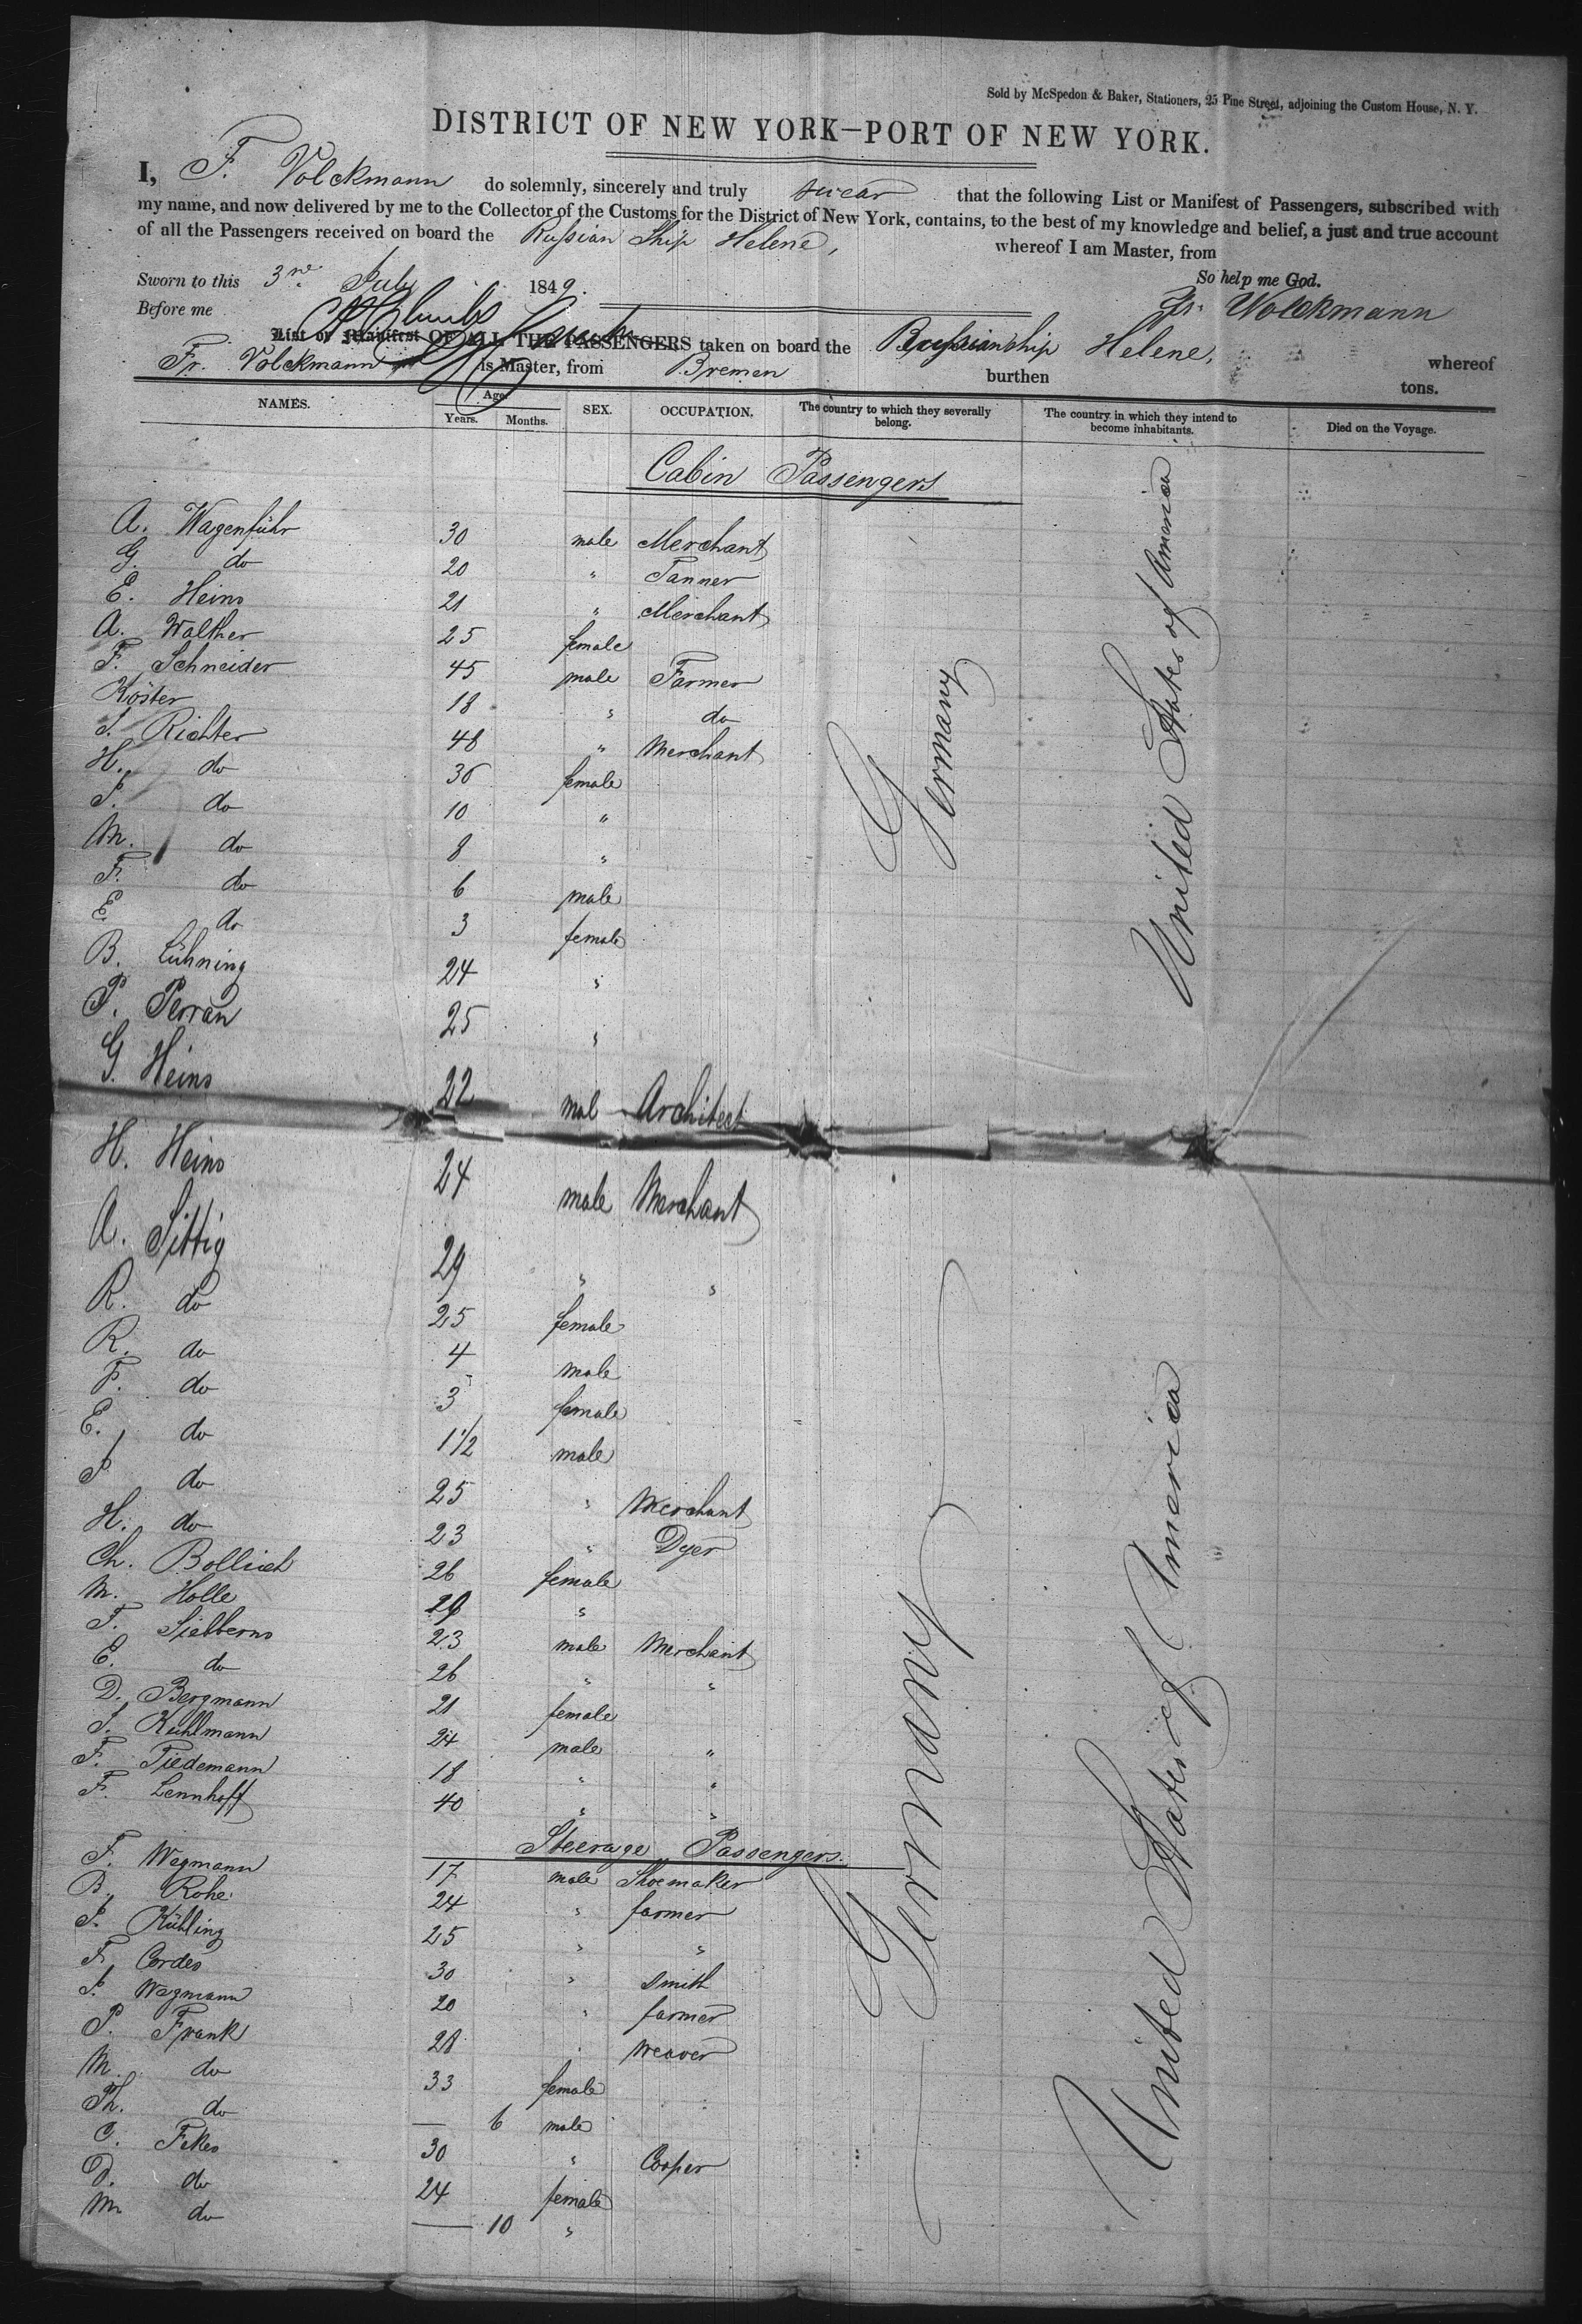 Sold by McSpedon & Baker, Stationers, 25 Pine Street, adjoining the Custom House, N. Y.
DISTRICT OF NEW YORK—PORT OF NEW YORK.
I, F. Volckmann do solemnly, sincerely and truly swear that the following List or Manifest of Passengers, subscribed with
my name, and now delivered by me to the Collector of the Customs for the District of New York, contains, to the best of my knowledge and belief, a just and true account
of all the Passengers received on board the Russian Ship Helene, whereof I am Master, from
So help me God.
Sworn to this 3rd July 1849.
Fr. Volckmann
Before me
List or Manifest OF ALL THE PASSENGERS taken on board the Russian Ship Helene, whereof
Fr. Volckmann is Master, from Bremen burthen tons.
NAMES. Age. Years. Months. SEX. OCCUPATION. The country to which they severally belong. The country in which they intend to become inhabitants. Died on the Voyage.
Cabin Passengers
A. Wagenführ 30 male Merchant
G. do 20 " Tanner
E. Heins 21 " Merchant
A. Walther 25 female
F. Schneider 45 male Farmer
Köster 18 " do
J. Richter 48 " Merchant
H. do 36 female
J. do 10 "
M. do 8 "
F. do 6 male
E. do 3 female
Germany
United States of America
B. Lühning 24 "
P. Perran 25 "
G. Heins 22 mal Architect
H. Heins 24 male Merchant
A. Sittig 29 " "
R. do 25 female
R. do 4 male
F. do 3 female
E. do 1 1/2 male
J. do 25 " Merchant
H. do 23 " Dyer
Ch. Bollich 26 female
M. Holle 29 "
F. Sielberns 23 male Merchant
E. do 26 " "
D. Bergmann 21 female
J. Kuhlmann 24 male "
F. Tiedemann 18 " "
F. Lennhoff 40 " "
Steerage Passengers.
F. Wegmann 17 male Shoemaker
B. Rohe 24 " farmer
J. Kühling 25 " "
F. Cordes 30 " Smith
J. Wegmann 20 " farmer
P. Frank 28 " Weaver
M. do 33 female
Th. do — 6 male
C. Fekes 30 " Cooper
D. do 24 female
M. do — 10 "
Germany
United States of America